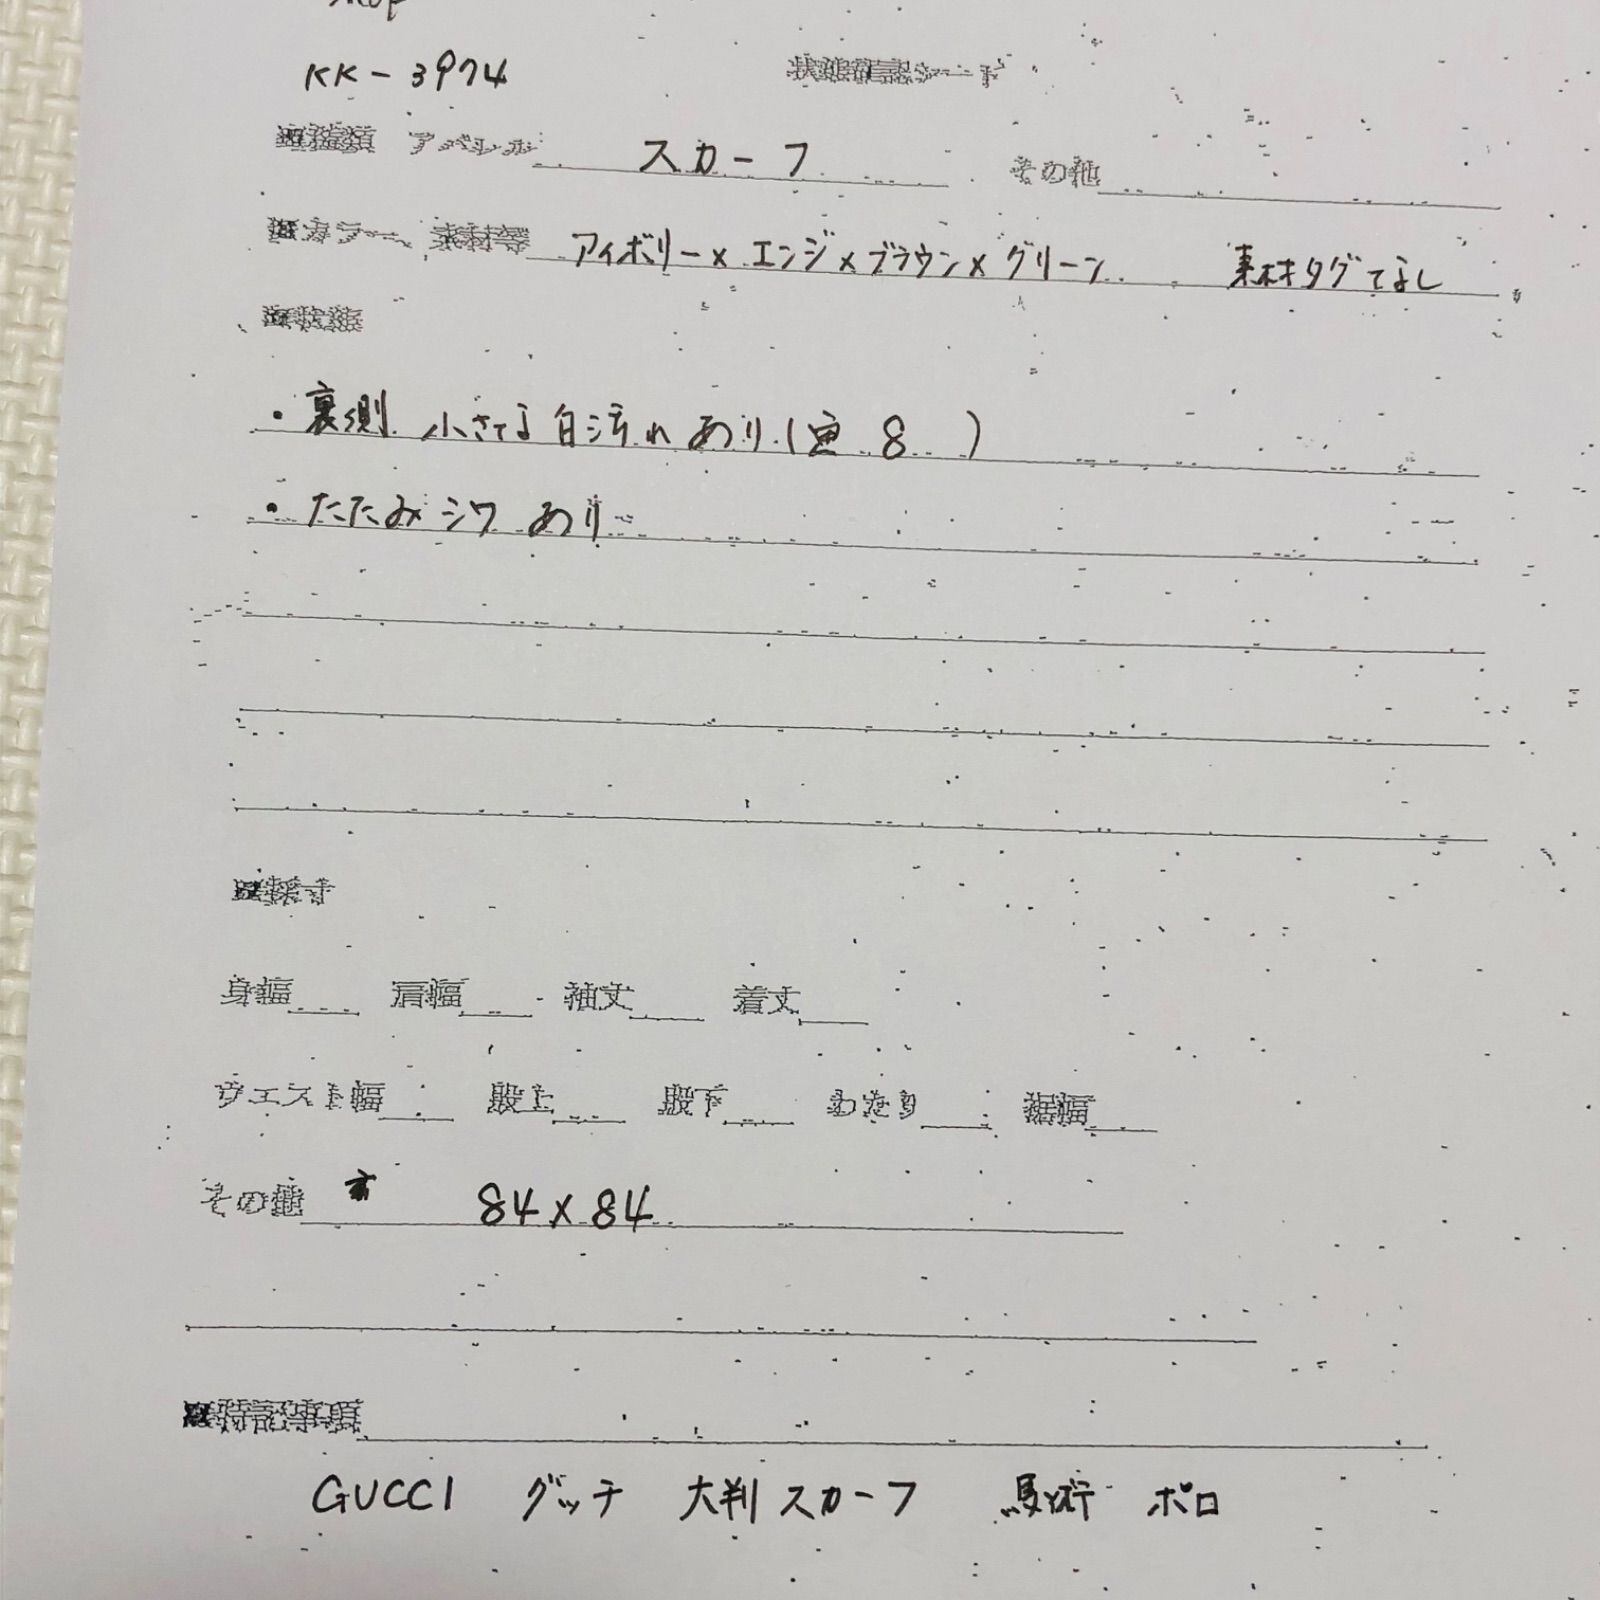 KK-3974 状態確認シート
■種類 アパレル スカーフ その他
■カラー、素材等 アイボリー×エンジ×ブラウン×グリーン 素材タグなし
■状態
・裏側 小さな白汚れあり(画8 )
・たたみシワあり
■採寸
身幅 肩幅 袖丈 着丈
ウエスト幅 股上 股下 わたり 裾幅
その他 84×84
■特記事項
GUCCI グッチ 大判スカーフ 馬術 ポロ